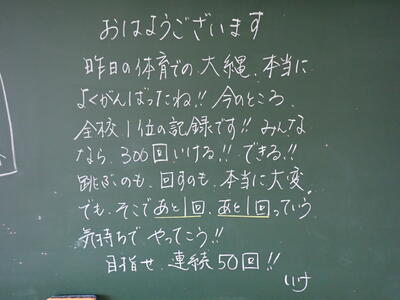 おはようございます
昨日の体育での大縄、本当に
よくがんばったね!! 今のところ、
全校1位の記録です!! みんな
なら、300回いける!! できる!!
跳ぶのも、回すのも、本当に大変。
でも、そこであと1回、あと1回っていう
気持ちで やってこう!!
目指せ、連続50回!!